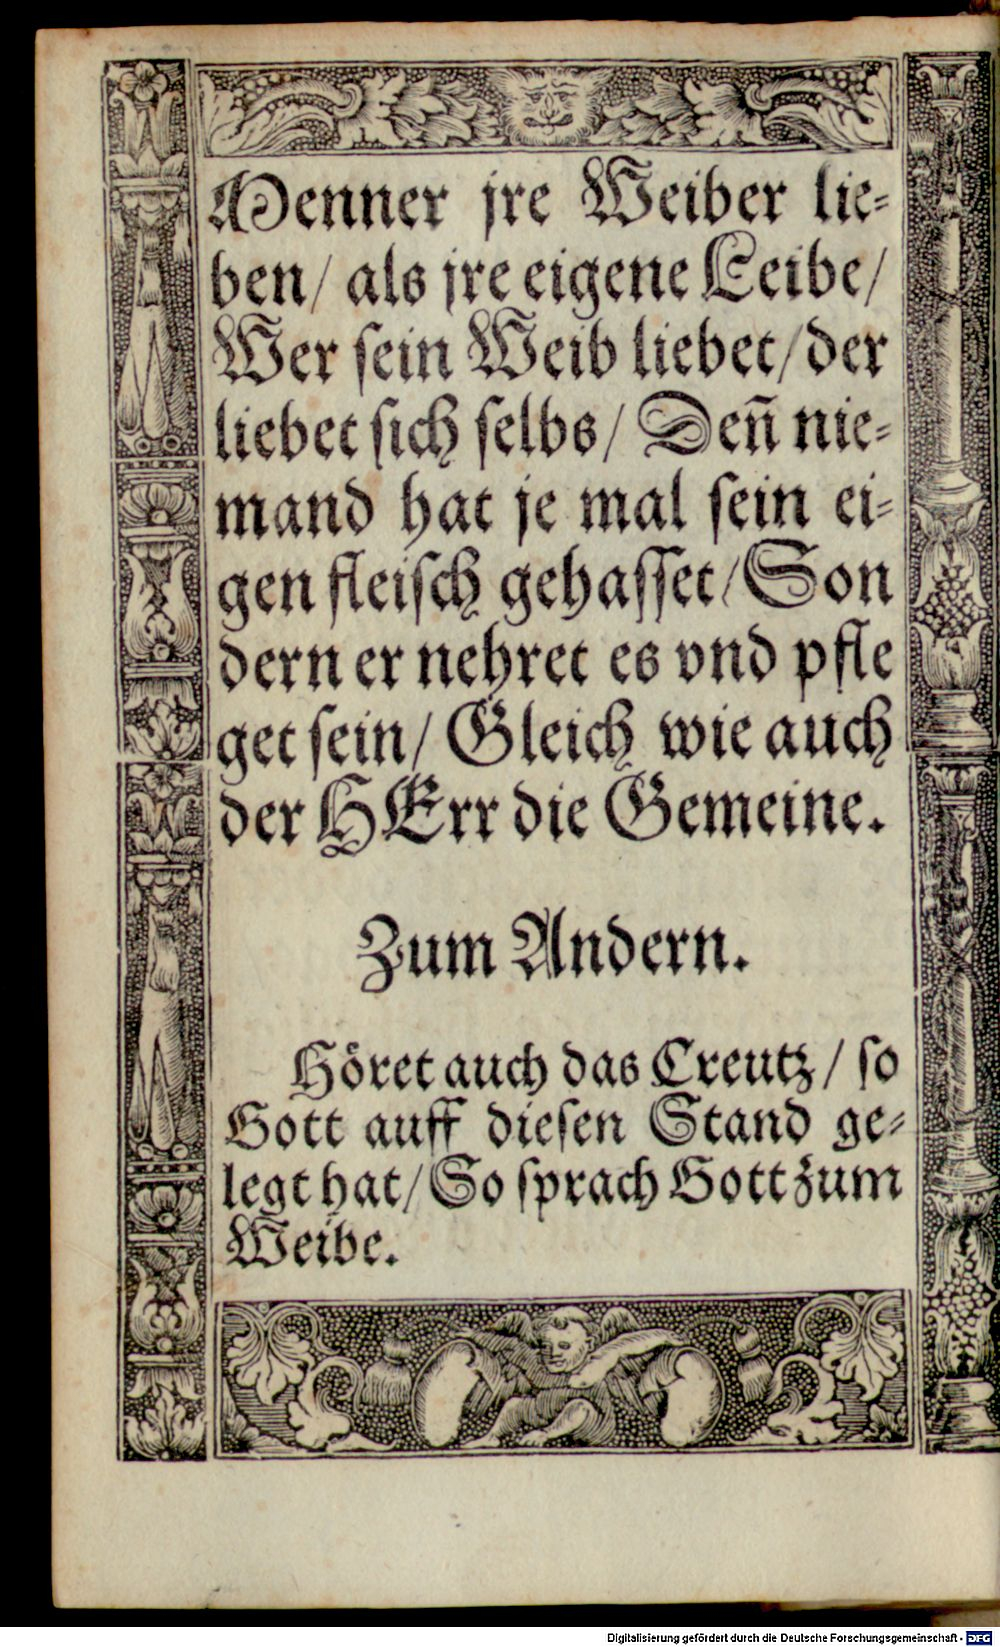 Menner jre Weiber lie-
ben/ als jre eigene Leibe/
Wer sein Weib liebet/ der
liebet sich selbs/ Deñ nie-
mand hat je mal sein ei-
gen fleisch gehasset/ Son
dern er nehret es vnd pfle
get sein/ Gleich wie auch
der HErr die Gemeine.
Zum Andern.
Höret auch das Creutz/ so
Gott auff diesen Stand ge-
legt hat/ So sprach Gott zum
Weibe.
Digitalisierung gefördert durch die Deutsche Forschungsgemeinschaft - DFG